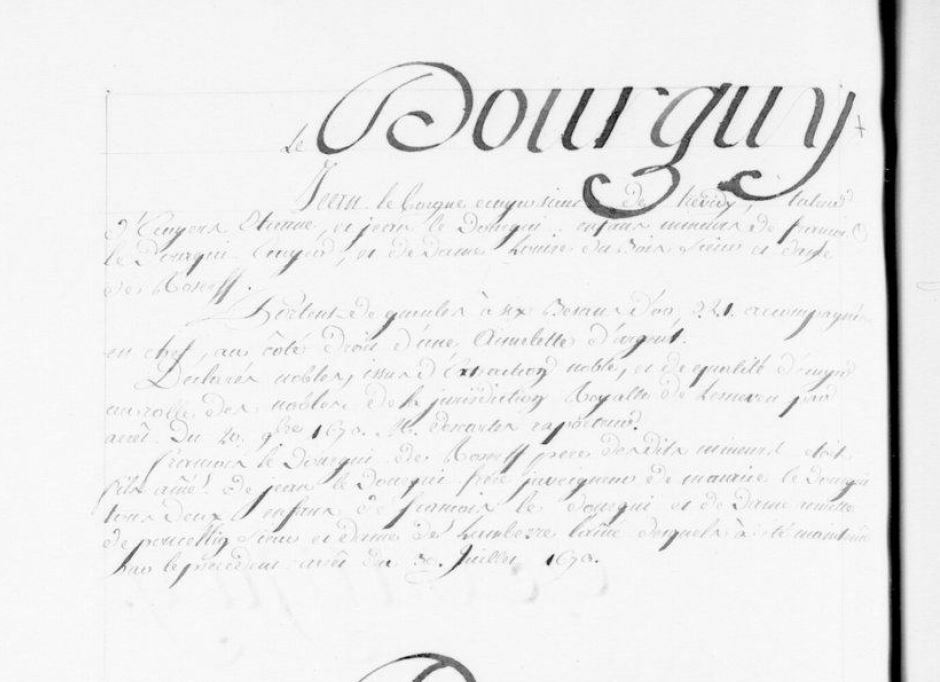 Le Dourguy
Jean le borgne ecuyer sieur de Kervidy, tuteur
d'Ecuyers Etienne, et jean le Dourgui, enfans mineurs de francois
le Dourgui Ecuyer, et de Dame Louise du Bois sieur et dame
de Roscoff.
Portent de gueules à six Besans d'or, 3.2.1. accompagnés
en chef, au côté droit d'une Annelette d'argent.
Declarés nobles, issus d'Extraction noble, et de qualité d'ecuyer
au rolle des nobles de la jurisdiction Royalle de Lesneven par
arrêt du 20. 9bre 1670. Mr. descartes raporteur.
francois le Dourgui de Roscoff pere desdits mineurs etoit
fils ainé de jean le Dourgui frere juveigneur de maurice le Dourgui
tous deux enfans de francois le dourgui et de Dame
de sieur et dame de l'ainé desquels à été maintenu
par le precedent arrêt du 30. Juillet 1670.